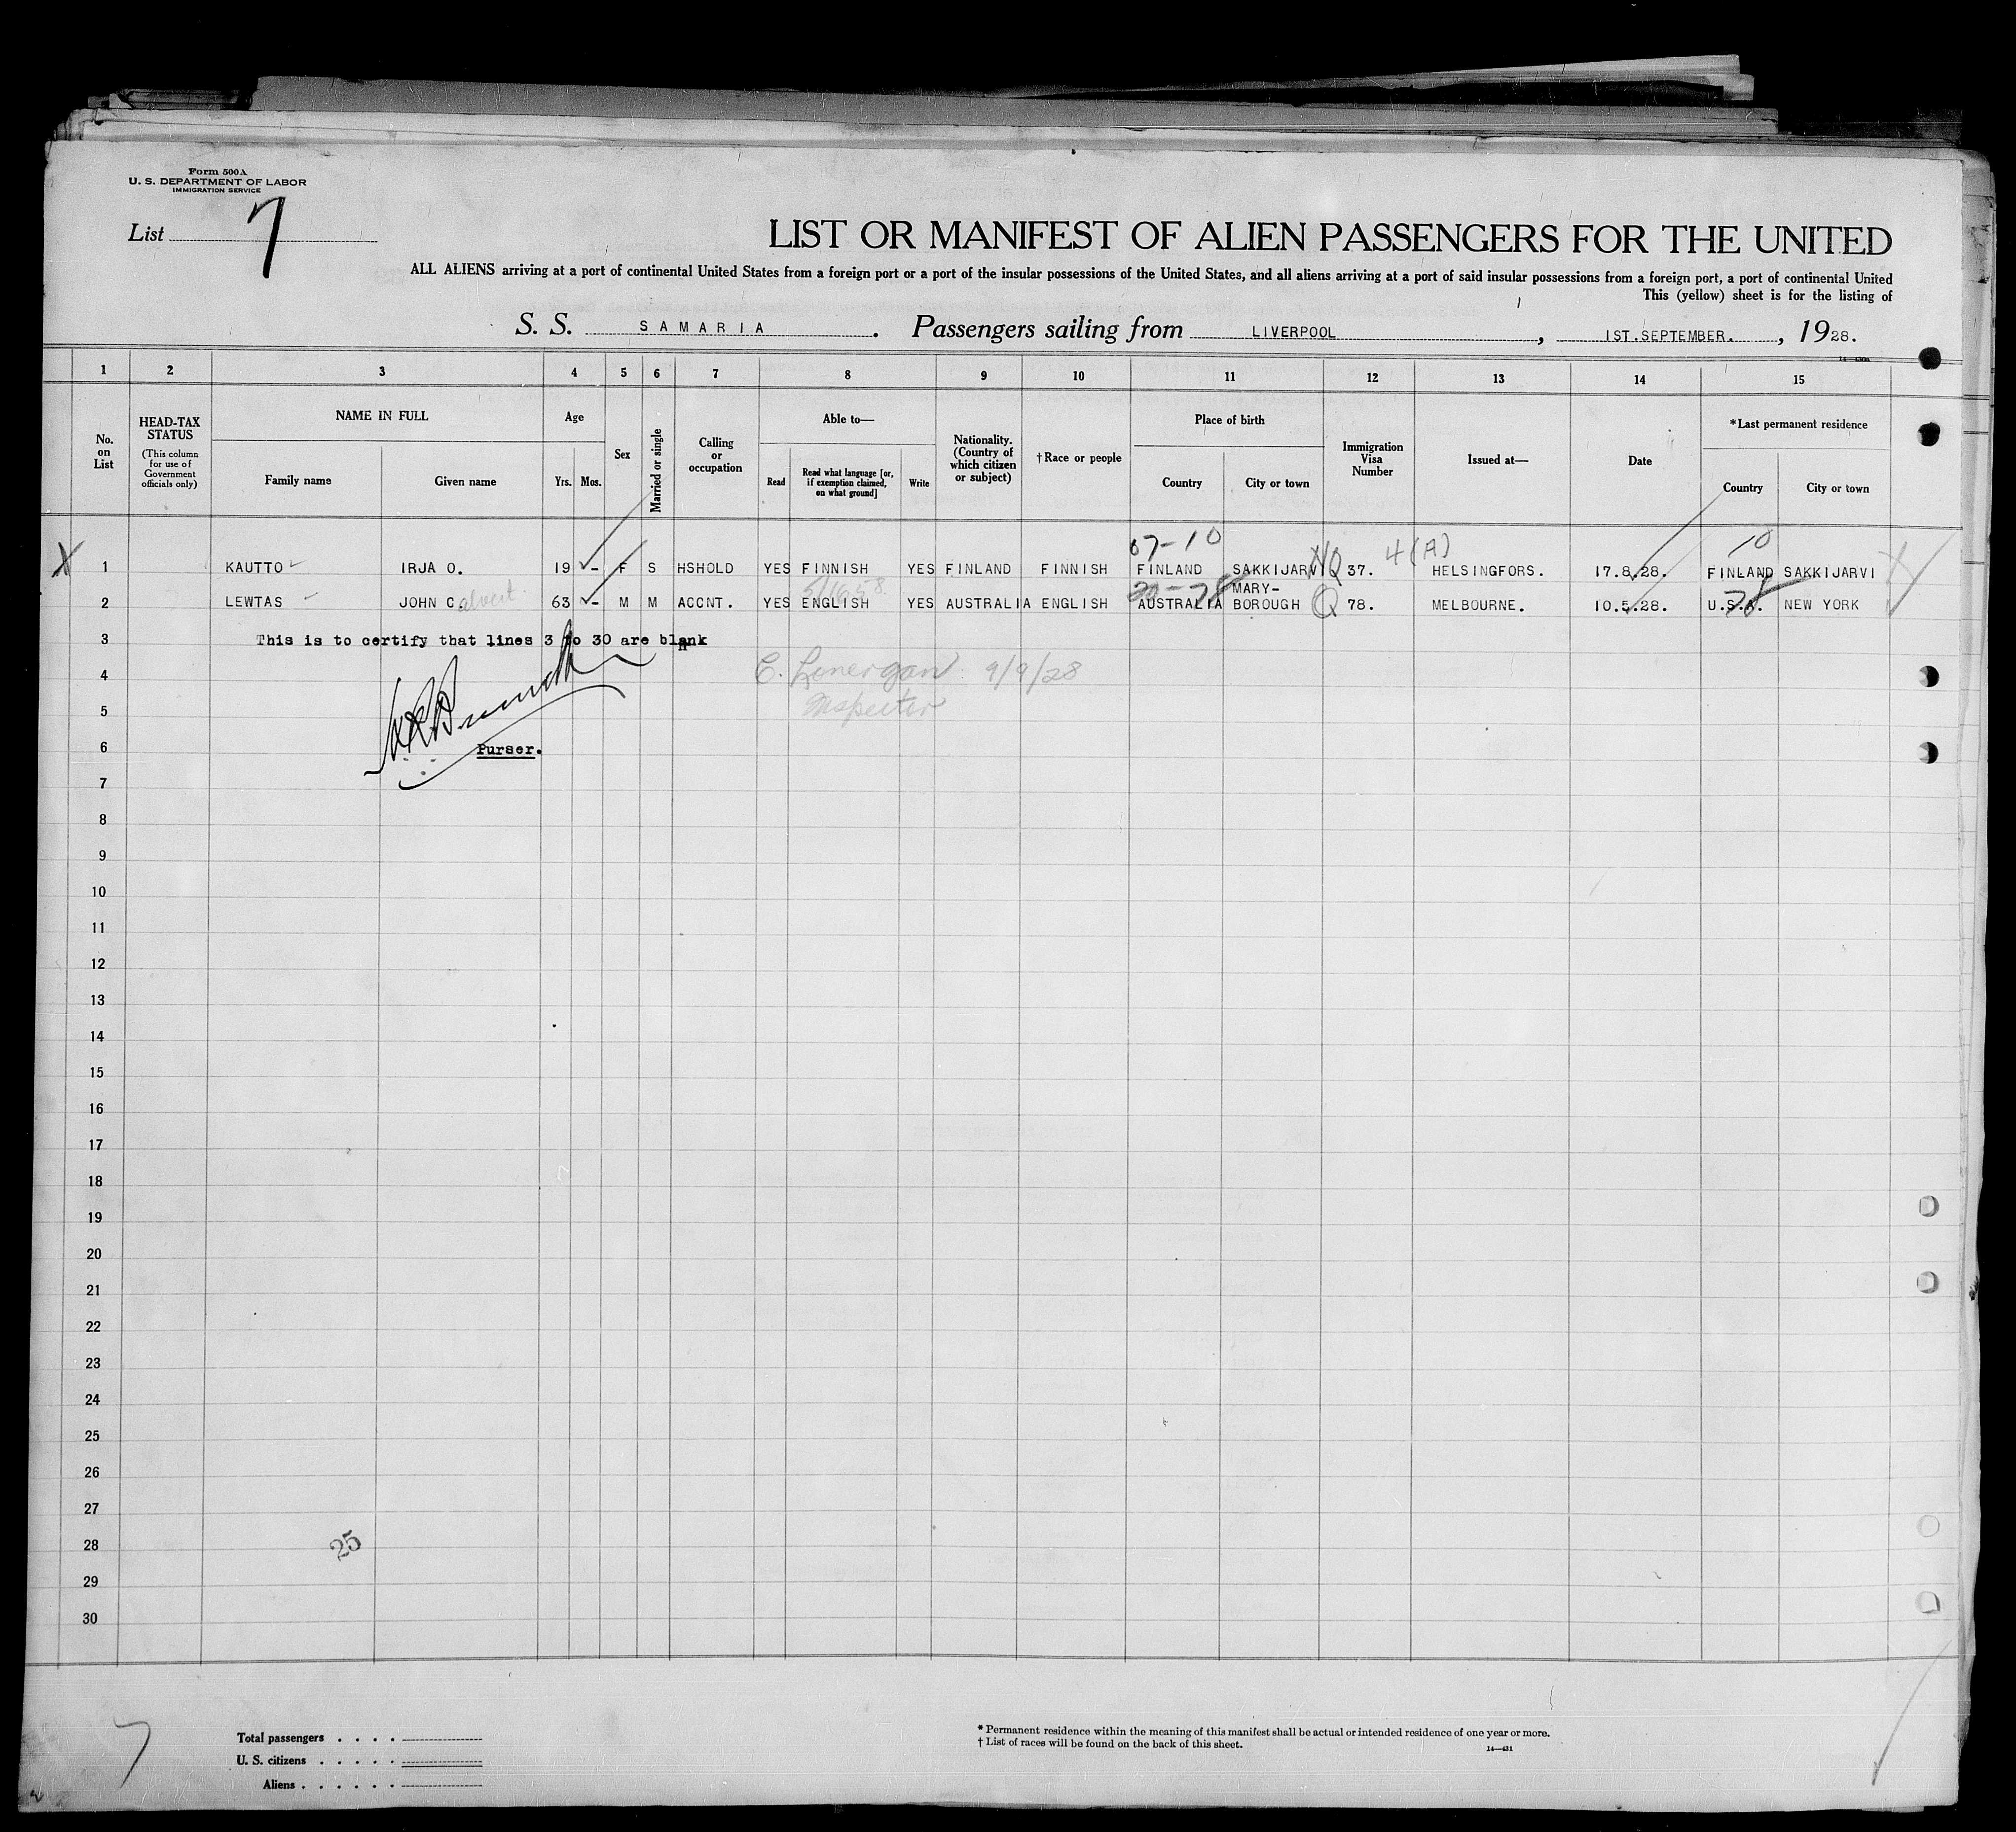 Form 500A
U. S. DEPARTMENT OF LABOR
IMMIGRATION SERVICE
List 7
LIST OR MANIFEST OF ALIEN PASSENGERS FOR THE UNITED
ALL ALIENS arriving at a port of continental United States from a foreign port or a port of the insular possessions of the United States, and all aliens arriving at a port of said insular possessions from a foreign port, a port of continental United
This (yellow) sheet is for the listing of
S. S. SAMARIA. Passengers sailing from LIVERPOOL, 1ST.SEPTEMBER., 1928.
1 2 3 4 5 6 7 8 9 10 11 12 13 14 15
No. on List
HEAD-TAX STATUS
(This column for use of Government officials only)
NAME IN FULL
Family name Given name
Age
Yrs. Mos.
Sex
Married or single
Calling or occupation
Able to—
Read
Read what language [or, if exemption claimed, on what ground]
Write
Nationality. (Country of which citizen or subject)
† Race or people
Place of birth
Country City or town
Immigration Visa Number
Issued at—
Date
*Last permanent residence
Country City or town
07-10 4(A) 10
X 1 KAUTTO IRJA O. 19 - F S HSHOLD YES FINNISH YES FINLAND FINNISH FINLAND SAKKIJARVI NQ 37. HELSINGFORS. 17.8.28. FINLAND SAKKIJARVI
2 LEWTAS JOHN C. 63 - M M ACCNT. YES ENGLISH YES AUSTRALIA ENGLISH AUSTRALIA MARY-BOROUGH Q 78. MELBOURNE. 10.5.28. U.S.A. NEW YORK
3 This is to certify that lines 3 to 30 are blank
4 C. Lonergan 9/9/28
5 Inspector
6 Purser.
7
8
9
10
11
12
13
14
15
16
17
18
19
20
21
22
23
24
25
26
27
28 25
29
30
7
Total passengers . . . .
U. S. citizens . . . . .
Aliens . . . . . .
* Permanent residence within the meaning of this manifest shall be actual or intended residence of one year or more.
† List of races will be found on the back of this sheet.
14—431